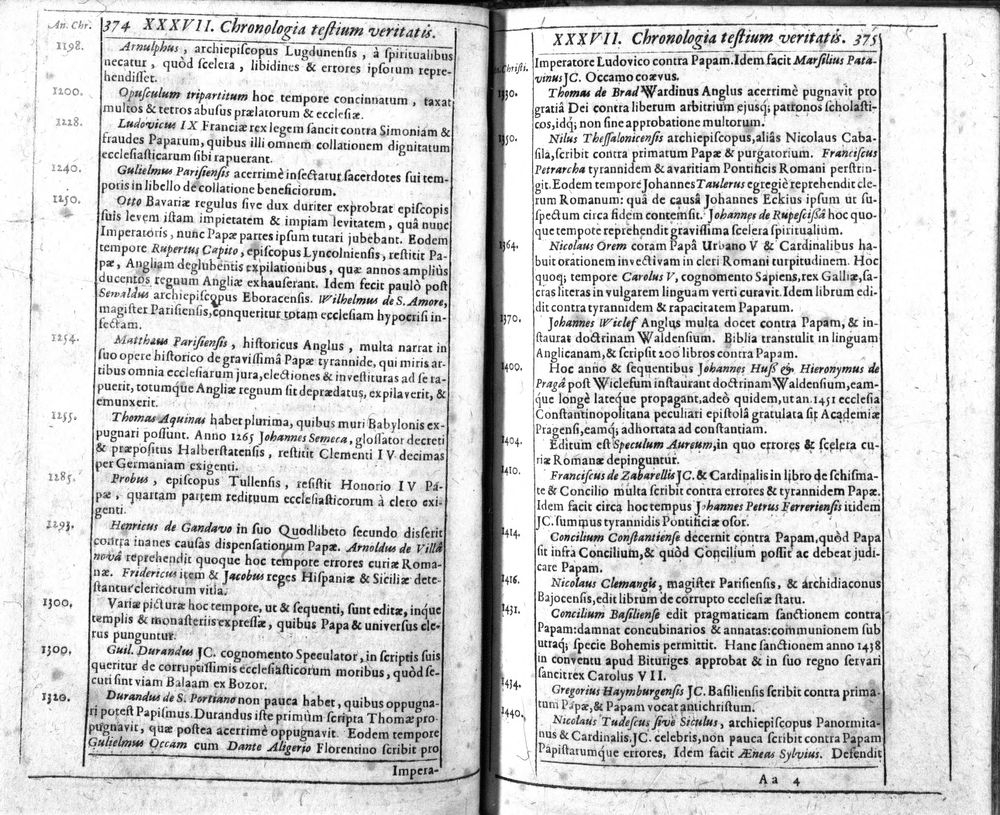 An. Chr.
374 XXXVII. Chronologia testium veritatis.
1198.
Arnulphus, archiepiscopus Lugdunensis, à spiritualibus
necatur, quòd scelera, libidines & errores ipsorum repre-
hendisset.
1200.
Opusculum tripartitum hoc tempore concinnatum, taxat
multos & tetros abusus prælatorum & ecclesiæ.
1228.
Ludovicus IX Franciæ rex legem sancit contra Simoniam &
fraudes Paparum, quibus illi omnem collationem dignitatum
ecclesiasticarum sibi rapuerant.
1240.
Gulielmus Parisiensis acerrimè insectatur sacerdotes sui tem-
poris in libello de collatione beneficiorum.
1250.
Otto Bavariæ regulus sive dux duriter exprobrat episcopis
suis levem istam impietatem & impiam levitatem, quâ nunc
Imperatoris, nunc Papæ partes ipsum tutari jubebant. Eodem
tempore Rupertus Capito, episcopus Lyncolniensis, restitit Pa-
pæ, Angliam deglubentis expilationibus, quæ annos ampliùs
ducentos regnum Angliæ exhauserant. Idem fecit paulò post
Sewaldus archiepiscopus Eboracensis. Wilhelmus de S. Amore,
magister Parisiensis, conqueritur totam ecclesiam hypocrisi in-
fectam.
1254.
Matthæus Parisiensis, historicus Anglus, multa narrat in
suo opere historico de gravissimâ Papæ tyrannide, qui miris ar-
tibus omnia ecclesiarum jura, electiones & investituras ad se ra-
puerit, totumque Angliæ regnum sit deprædatus, expilaverit, &
emunxerit.
1255.
Thomas Aquinas haber plurima, quibus muri Babylonis ex-
pugnari possunt. Anno 1265 Johannes Semeca, glossator decreti
& præpositus Halberstatensis, restitit Clementi IV decimas
per Germaniam exigenti.
1285.
Probus, episcopus Tullensis, resistit Honorio IV Pa-
pæ, quartam partem redituum ecclesiasticorum à clero exi-
genti.
1293.
Henricus de Gandavo in suo Quodlibeto secundo disserit
contra inanes causas dispensationum Papæ. Arnoldus de Villâ
novâ reprehendit quoque hoc tempore errores curiæ Roma-
næ. Fridericus item & Jacobus reges Hispaniæ & Siciliæ dete-
stantur clericorum vitia.
1300.
Variæ picturæ hoc tempore, ut & sequenti, sunt editæ, inque
templis & monasteriis expressæ, quibus Papa & universus cle-
rus punguntur.
1300.
Guil. Durandus JC. cognomento Speculator, in scriptis suis
queritur de corruptissimis ecclesiasticorum moribus, quòd se-
cuti sint viam Balaam ex Bozor.
1320.
Durandus de S. Portiano non pauca habet, quibus oppugna-
ri potest Papismus. Durandus iste primùm scripta Thomæ pro-
pugnavit, quæ postea acerrimè oppugnavit. Eodem tempore
Gulielmus Occam cum Dante Aligerio Florentino scribit pro
Impera-
XXXVII. Chronologia testium veritatis. 375
Christi.
Imperatore Ludovico contra Papam. Idem facit Marsilius Pata-
vinus JC. Occamo coævus.
1330.
Thomas de Brad Wardinus Anglus acerrimè pugnavit pro
gratiâ Dei contra liberum arbitrium ejusq; patronos scholasti-
cos, idq; non sine approbatione multorum.
1350.
Nilus Thessalonicensis archiepiscopus, aliâs Nicolaus Caba-
sila, scribit contra primatum Papæ & purgatorium. Franciscus
Petrarcha tyrannidem & avaritiam Pontificis Romani perstrin-
git. Eodem tempore Johannes Taulerus egregiè reprehendit cle-
rum Romanum: quâ de causâ Johannes Eckius ipsum ut su-
spectum circa fidem contemsit. Johannes de Rupescissâ hoc quo-
que tempore reprehendit gravissima scelera spiritualium.
1364.
Nicolaus Orem coram Papâ Urbano V & Cardinalibus ha-
buit orationem invectivam in cleri Romani turpitudinem. Hoc
quoq; tempore Carolus V, cognomento Sapiens, rex Galliæ, sa-
cras literas in vulgarem linguam verti curavit. Idem librum edi-
dit contra tyrannidem & rapacitatem Paparum.
1370.
Johannes Wiclef Anglus multa docet contra Papam, & in-
staurat doctrinam Waldensium. Biblia transtulit in linguam
Anglicanam, & scripsit 200 libros contra Papam.
1400.
Hoc anno & sequentibus Johannes Huss & Hieronymus de
Pragâ post Wiclefum instaurant doctrinam Waldensium, eam-
que longè lateque propagant, adeò quidem, ut an. 1451 ecclesia
Constantinopolitana peculiari epistolâ gratulata sit Academiæ
Pragensis, eamq; adhortata ad constantiam.
1404.
Editum est Speculum Aureum, in quo errores & scelera cu-
riæ Romanæ depinguntur.
1410.
Franciscus de Zabarellis JC. & Cardinalis in libro de schisma-
te & Concilio multa scribit contra errores & tyrannidem Papæ.
Idem facit circa hoc tempus Johannes Petrus Ferreriensis itidem
JC. summus tyrannidis Pontificiæ osor.
1414.
Concilium Constantiense decernit contra Papam, quòd Papa
sit infra Concilium, & quòd Concilium possit ac debeat judi-
care Papam.
1416.
Nicolaus Clemangis, magister Parisiensis, & archidiaconus
Bajocensis, edit librum de corrupto ecclesiæ statu.
1431.
Concilium Basiliense edit pragmaticam sanctionem contra
Papam: damnat concubinarios & annatas: communionem sub
utraq; specie Bohemis permittit. Hanc sanctionem anno 1438
in conventu apud Bituriges approbat & in suo regno servari
sancit rex Carolus VII.
1434.
Gregorius Haymburgensis JC. Basiliensis scribit contra prima-
tum Papæ, & Papam vocat antichristum.
1440.
Nicolaus Tudescus sive Siculus, archiepiscopus Panormita-
nus & Cardinalis. JC. celebris, non pauca scribit contra Papam
Papistarumque errores, Idem facit Æneas Sylvius. Defendit
Aa 4